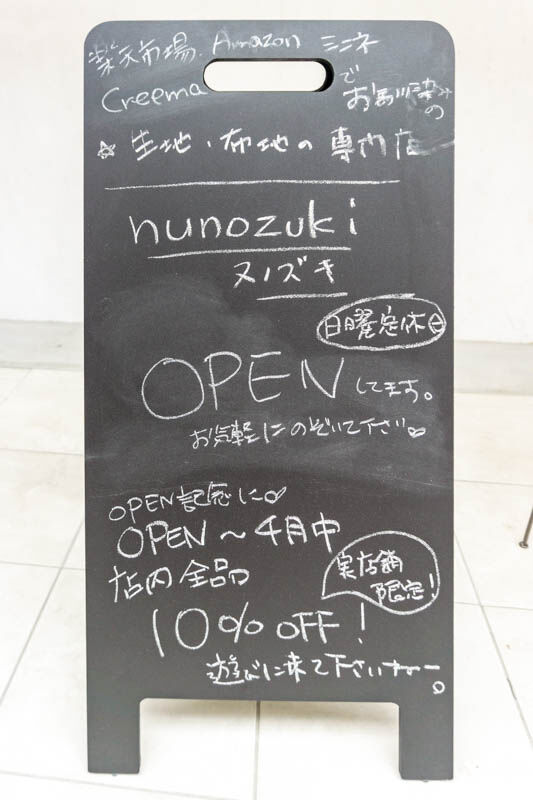 楽天市場、Amazon ミンネ
Creema でお馴染みの
☆生地・布地の専門店
nunozuki
ヌノズキ
日曜定休日
OPENしてます。
お気軽にのぞいて下さい♡
OPEN記念に♡
OPEN～4月中
店内全品
実店舗限定！
10%OFF！
遊びに来て下さいねー。